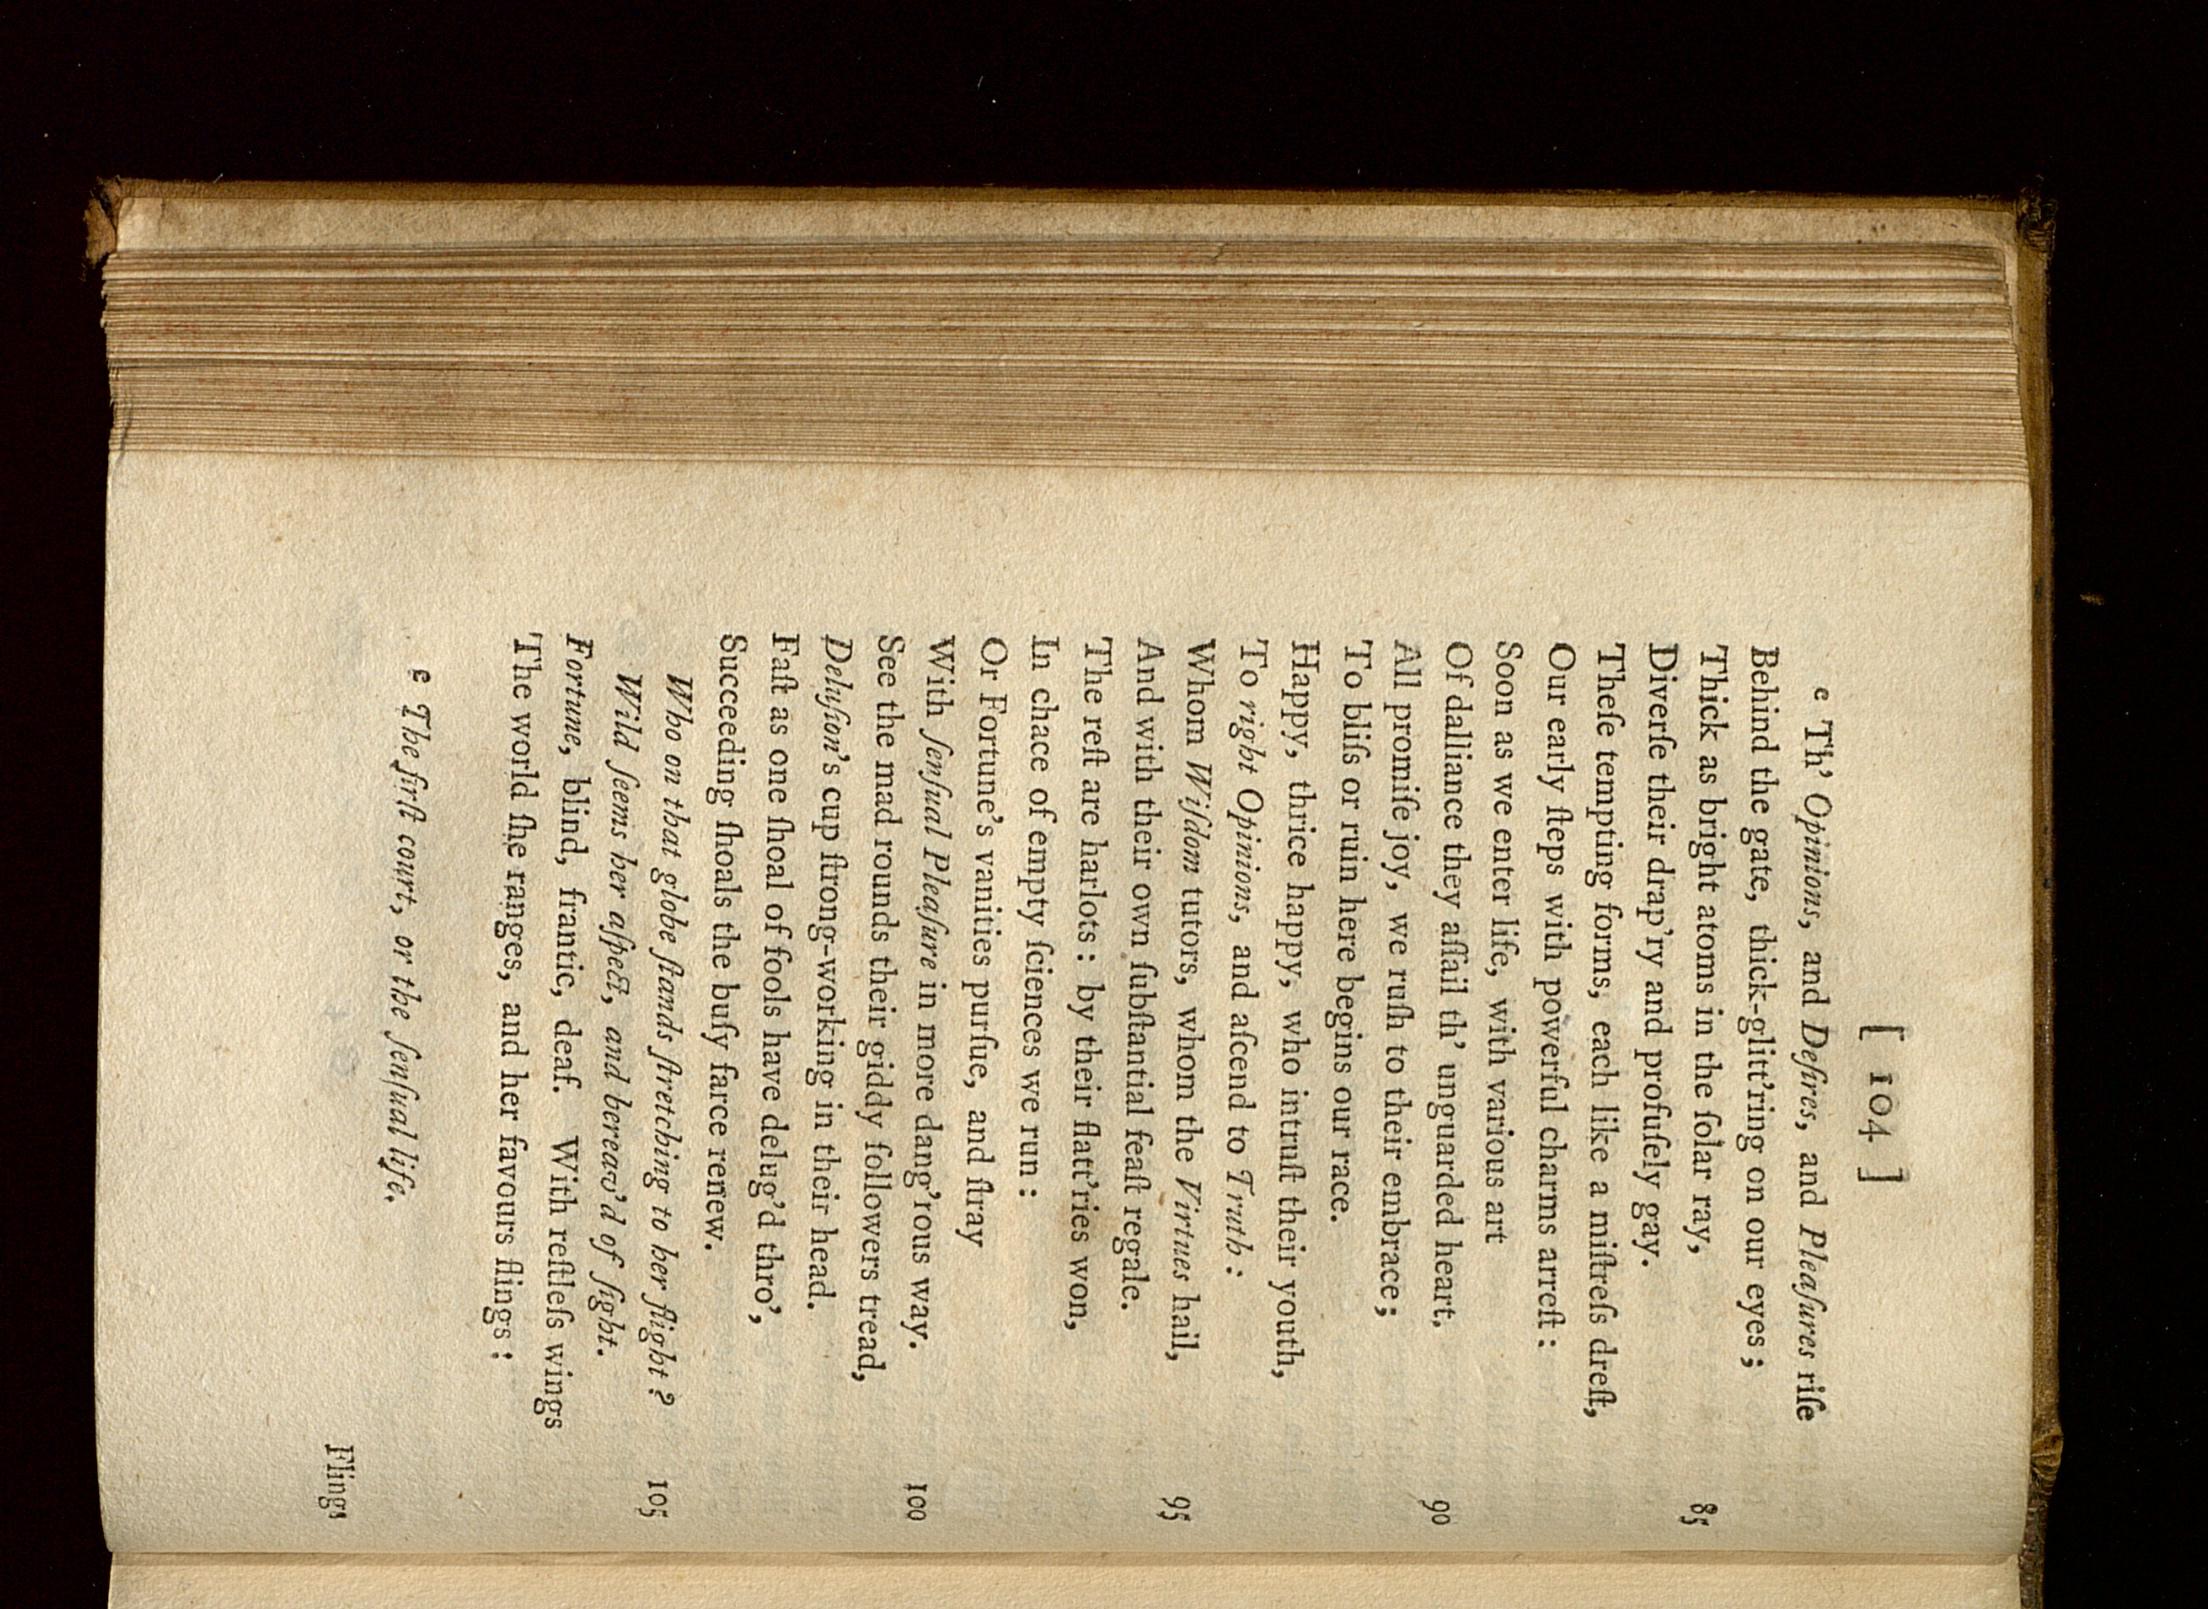 [ 104 ]
e Th' Opinions, and Deſires, and Pleaſures riſe
Behind the gate, thick-glitt'ring on our eyes;
Thick as bright atoms in the ſolar ray, 85
Diverſe their drap'ry and profuſely gay.
Theſe tempting forms, each like a miſtreſs dreſt,
Our early ſteps with powerful charms arreſt:
Soon as we enter life, with various art
Of dalliance they aſſail th' unguarded heart. 90
All promiſe joy, we ruſh to their embrace;
To bliſs or ruin here begins our race.
Happy, thrice happy, who intruſt their youth,
To right Opinions, and aſcend to Truth:
Whom Wiſdom tutors, whom the Virtues hail, 95
And with their own ſubſtantial feaſt regale.
The reſt are harlots: by their flatt'ries won,
In chace of empty ſciences we run:
Or Fortune's vanities purſue, and ſtray
With ſenſual Pleaſure in more dang'rous way. 100
See the mad rounds their giddy followers tread,
Deluſion's cup ſtrong-working in their head.
Faſt as one ſhoal of fools have delug'd thro',
Succeeding ſhoals the buſy farce renew.
Who on that globe ſtands ſtretching to her flight? 105
Wild ſeems her aſpect, and bereav'd of ſight.
Fortune, blind, frantic, deaf. With reſtleſs wings
The world ſhe ranges, and her favours flings:
e The firſt court, or the ſenſual life.
Flings